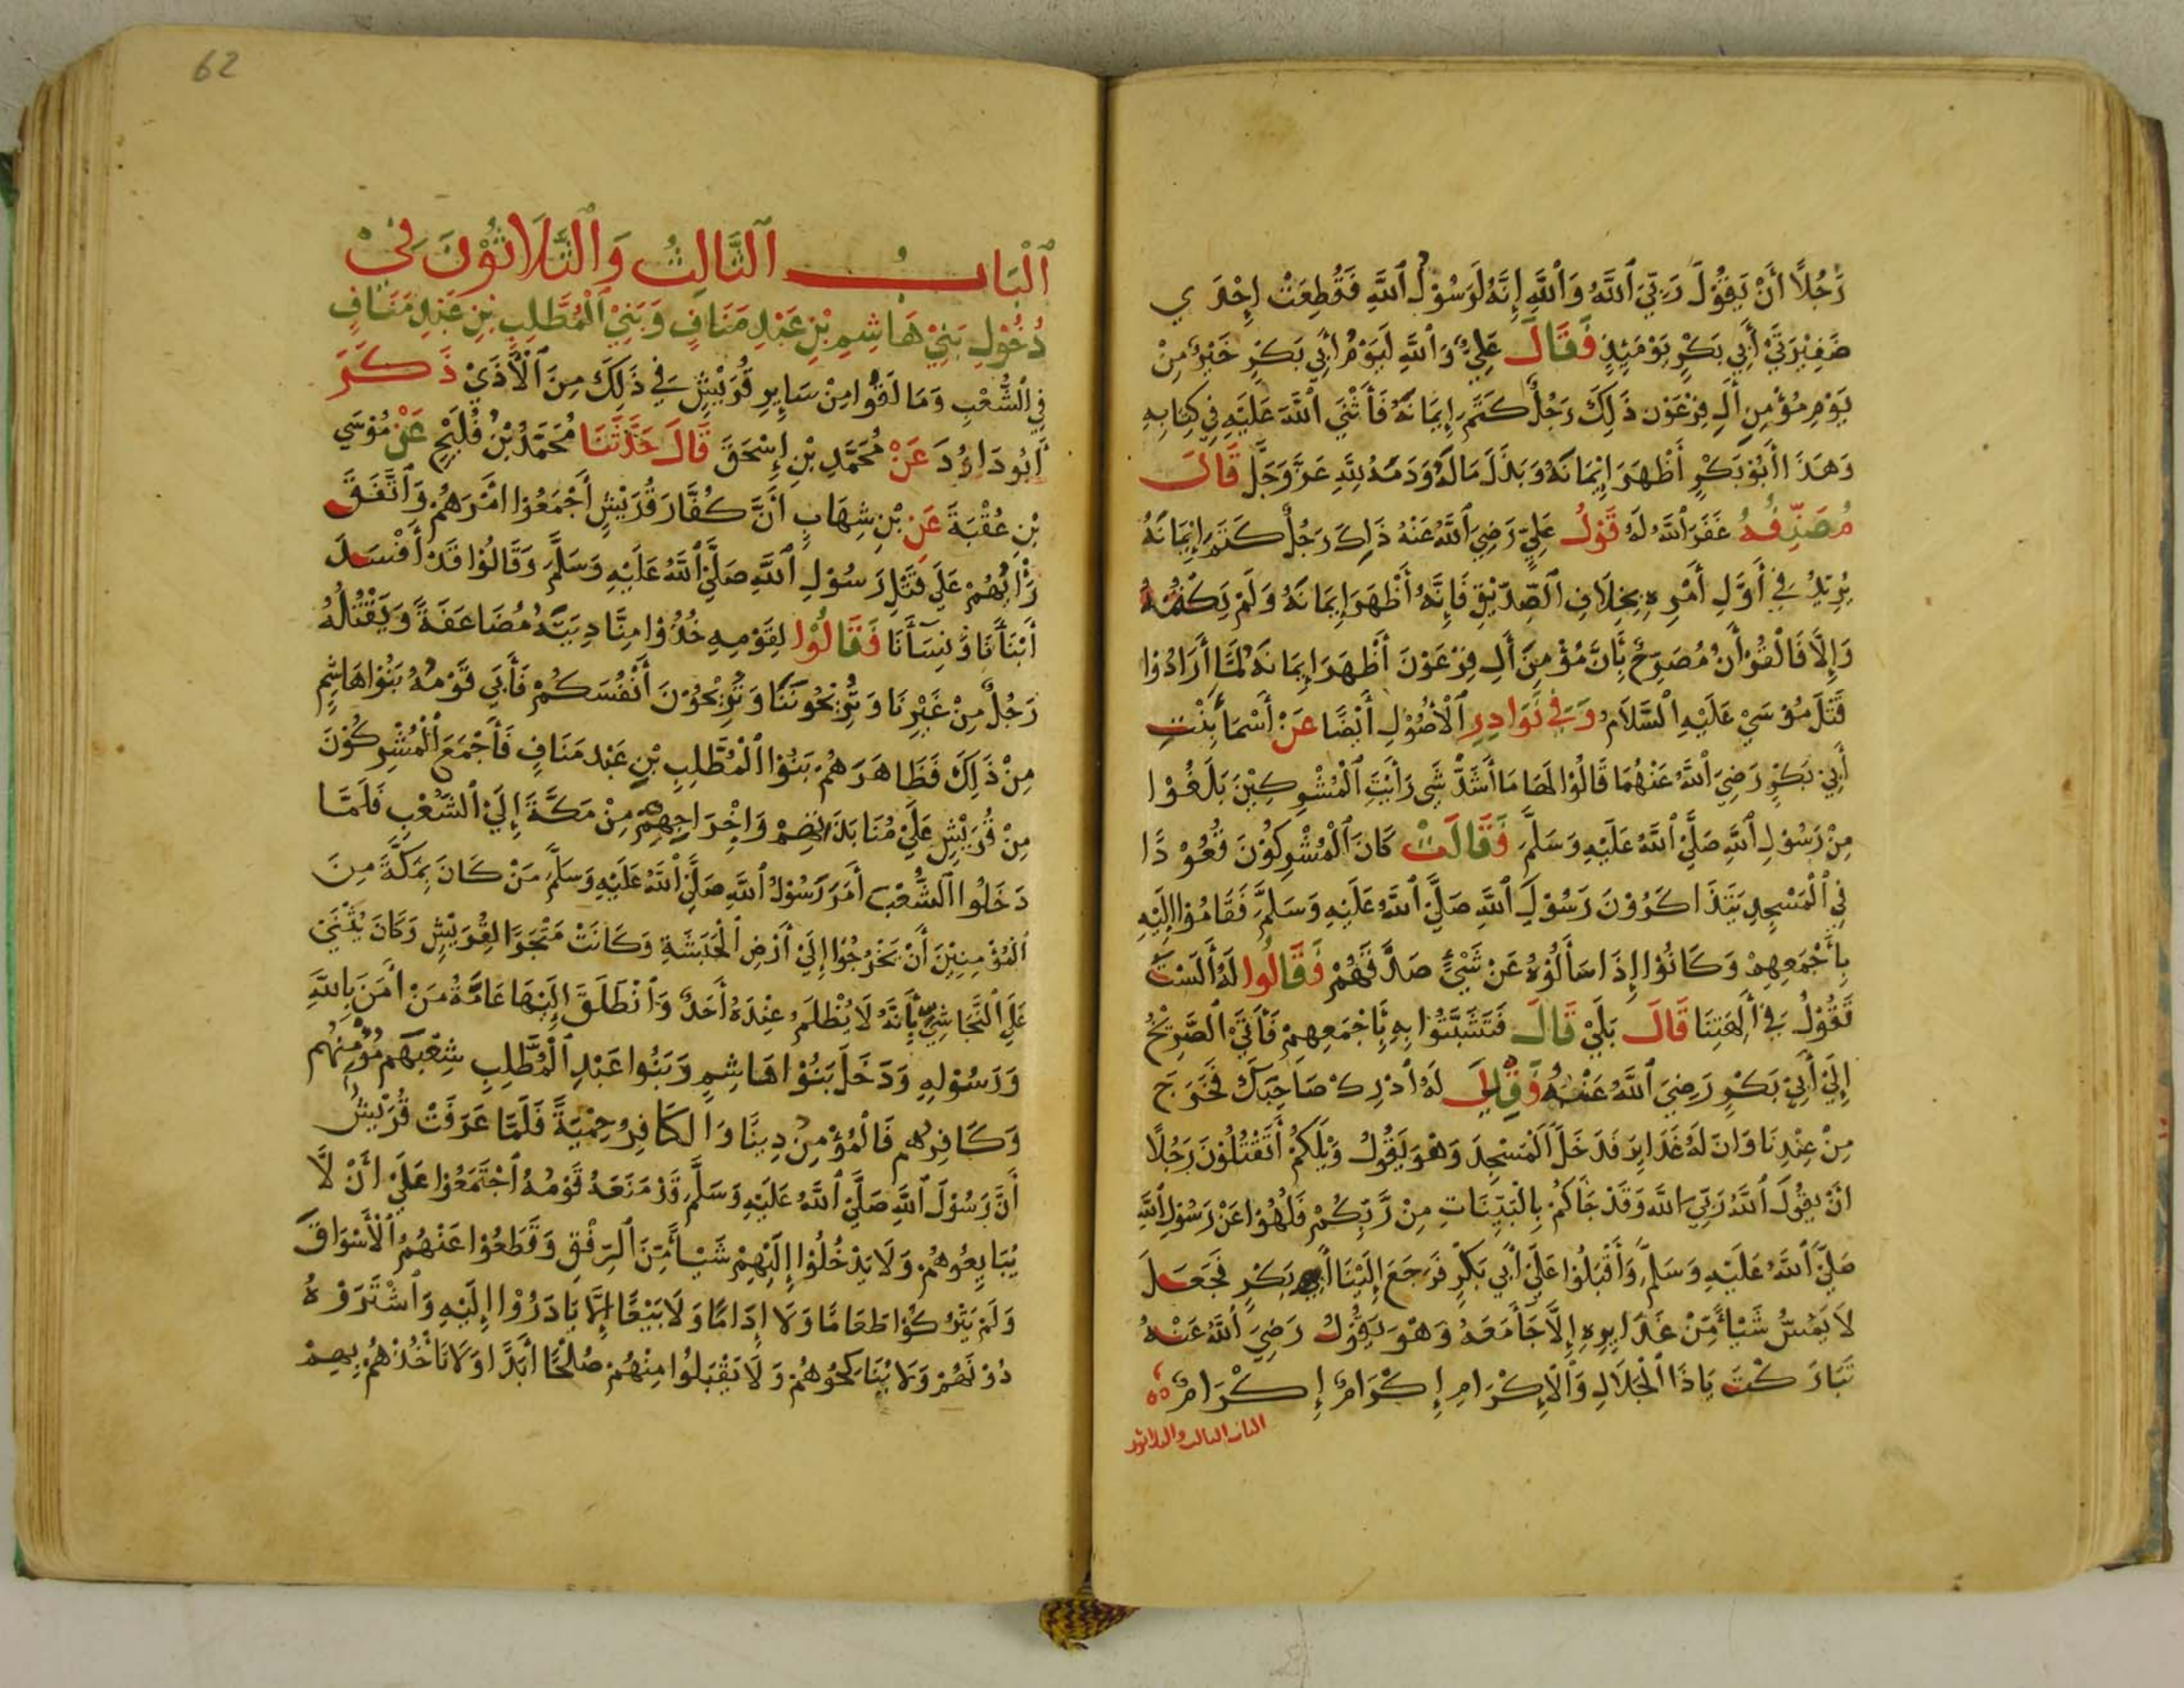 رَجُلًا أَنْ يَقُوْلَ رَبِّيَ ٱللَّهُ وَٱللَّهِ إِنَّهُ لَرَسُوْلُ ٱللَّهِ فَقُطِعَتْ إِحْدَي
ضَفِيْرَتَيْ أَبِي بَكْرٍ يَوْمَئِذٍ فَقَالَ عَلِيٌّ وَٱللَّهِ لَيَوْمُ أَبِي بَكْرٍ خَيْرٌ مِنْ
يَوْمِ مُؤْمِنِ أَلِ فِرْعَوْن ذَلِكَ رَجُلٌ كَتَمَ إِيمَانَهُ فَأَثْنَي ٱللَّهُ عَلَيْهِ فِي كِتَابِهِ
وَهَذَا أَبُوْ بَكْرٍ أَظْهَرَ إِيْمَانَهُ وَبَذَلَ مَالَهُ وَدَمَهُ لِلَّهِ عَزَّ وَجَلَّ قَالَ
مُصَنِّفُهُ غَفَرَ ٱللَّهُ لَهُ قَوْلُ عَلِيٍّ رَضِيَ ٱللَّهُ عَنْهُ ذَلِكَ رَجُلٌ كَتَمَ إِيْمَانَهُ
يُرِيْدُ فِي أَوَّلِ أَمْرِهِ بِخِلَافِ ٱلصِّدِّيْقِ فَإِنَّهُ أَظْهَرَ إِيمَانَهُ وَلَمْ يَكْتُمْهُ
وَإِلَّا فَالْقُرْأٰنُ مُصَرِّحٌ بِأَنَّ مُؤْمِنَ أَلِ فِرْعَوْنَ أَظْهَرَ إِيمَانَهُ لَمَّا أَرَادُوْا
قَتْلَ مُوْسَيْ عَلَيْهِ ٱلسَّلَامُ وَفِي نَوَادِرِ ٱلْأُصُوْلِ أَيْضًا عَنْ أَسْمَأَ بِنْتِ
أَبِيْ بَكْرٍ رَضِيَ ٱللَّهُ عَنْهُمَا قَالُوْا لَهَا مَا أَشَدُّ شَي رَأَيْتِ ٱلْمُشْرِكِيْنَ بَلَغُوْا
مِنْ رَسُوْلِ ٱللَّهِ صَلَّيْ ٱللَّهُ عَلَيْهِ وَسَلَّمَ فَقَالَتْ كَانَ ٱلْمُشْرِكُوْنَ قُعُوْدًا
فِي ٱلْمَسْجِدِ يَتَذَاكَرُوْنَ رَسُوْلَ ٱللَّهِ صَلَّيْ ٱللَّهُ عَلَيْهِ وَسَلَّمَ فَقَامُوْا إِلَيْهِ
بِأَجْمَعِهِمْ وَكَانُوْا إِذَا سَأَلُوْهُ عَنْ شَيْئٍ صَدَّقَهُمْ فَقَالُوا لَهُ أَلَسْتَ
تَقُوْلُ فِي أٰلِهَتِنَا قَالَ بَلَيْ قَالَ فَتَشَبَّثُوْا بِهِ بِأَجْمَعِهِمْ فَأَتَيَ ٱلصَّرِيْخُ
إِلَيْ أَبِيْ بَكْرٍ رَضِيَ ٱللَّهُ عَنْهُ فَقِيْلَ لَهُ أَدْرِكْ صَاحِبَكَ فَخَرَجَ
مِنْ عِنْدِنَا وَانَّ لَهُ غَدَايِرَ فَدَخَلَ ٱلْمَسْجِدَ وَهْوَ يَقُوْلُ وَيْلَكُمْ أَتَقْتُلُوْنَ رَجُلًا
أَنْ يَقُوْلَ ٱللَّهُ رَبِّيَ ٱللَّه وَقَدْ جَأَكُمْ بِالْبَيِّنَاتِ مِنْ رَّبِّكُمْ فَلُهُوْا عَنْ رَسُوْلِ ٱللَّهِ
صَلَّيْ ٱللَّهُ عَلَيْهِ وَسَلَّمَ وَأَقْبَلُوْا عَلَيْ أَبِي بَكْرٍ فَرَجَعَ إِلَيْنَا أَبِي بَكْرٍ فَجَعَلَ
لَا يَمُسُّ شَيْأً مِّنْ غَدَايِرِهِ إِلَّا جَأَ مَعَهُ وَهْوَ يَقُوْلُ رَضِيَ ٱللَّهُ عَنْهُ
تَبَارَكْتَ يَاذَا ٱلْجَلَالِ وَٱلْإِكْرَامِ إِكْرَامٌ إِكْرَامٌ
الباب الثالث والثلاثون
62
ٱلْبَابُ ٱلثَّالِثُ وَٱلثَّلَاثُوْنَ فِيْ
دُخُوْلِ بَنِيْ هَاشِمِ بْنِ عَبْدِ مَنَافٍ وَبَنِيْ ٱلْمُطَّلِبِ بْنِ عَبْدِ مَنَافٍ
فِي ٱلشُّعْبِ وَمَا لَقُوْا مِنْ سَايِرِ قُرَيْشٍ فِي ذَلِكَ مِنَ ٱلْأَذَيْ ذَكَرَ
أَبُو دَاوُدَ عَنْ مُحَمَّدِ بْنِ إِسْحَقَ قَالَ حَدَّثَنَا مُحَمَّدُ بْنُ فُلَيْحٍ عَنْ مُوْسَي
بْنِ عُقْبَةَ عَنِ بْنِ شِهَابٍ أَنَّ كُفَّارَ قُرَيْشٍ أَجْمَعُوْا أَمْرَهُمْ وَٱتَّفَقَ
رَأْيُهُمْ عَلَي قَتْلِ رَسُوْلِ ٱللَّهِ صَلَّيْ ٱللَّهُ عَلَيْهِ وَسَلَّمَ وَقَالُوْا قَدْ أَفْسَدَ
أَبْنَأَنَا وَنِسَأَنَا فَقَالُوْا لِقَوْمِهِ خُذُوْا مِنَّا دِيَتَهُ مُضَاعَفَةً وَيَقْتُلُهُ
رَجُلٌ مِنْ غَيْرِنَا وَتُرِيْحُونَنَا وَتُرِيْحُوْنَ أَنْفُسَكُمْ فَأَبَي قَوْمُهُ بَنُوْا هَاشِمٍ
مِنْ ذَلِكَ فَظَاهَرَهُمْ بَنُوْا ٱلْمُطَّلِبِ بْنِ عَبْد مَنَافٍ فَأَجْمَعَ ٱلْمُشْرِكُوْنَ
مِنْ قُرَيْشٍ عَلَيْ مُنَابَذَتِهِمْ وَإِخْرَاجِهِمْ مِنْ مَكَّةَ إِلَيْ ٱلشُّعْبِ فَلَمَّا
دَخَلُوا ٱلشُّعْبَ أَمَرَ رَسُوْلُ ٱللَّهِ صَلَّيْ ٱللَّهُ عَلَيْهِ وَسَلَّمَ مَنْ كَانَ بِمَكَّةَ مِنَ
ٱلْمُؤْمِنِيْنَ أَنْ يَخْرُجُوْا إِلَيْ أَرْضِ ٱلْحَبَشَةِ وَكَانَتْ مَتْجَرًا لِقُرَيْشٍ وَكَانَ يُثْنَيْ
عَلَي ٱلنَّجَاشِيِّ بِأَنَّهُ لَا يُظْلَمُ عِنْدَهُ أَحَدٌ وَٱنْطَلَقَ إِلَيْهَا عَامَّةُ مَنْ أٰمَنَ بِاللَّهِ
وَرَسُوْلِهِ وَدَخَلَ بَنُوْا هَاشِمٍ وَبَنُوا عَبْدِ ٱلْمُطَّلِبِ شِعْبَهُم مُؤْمِنُهُم
وَكَافِرُهُم فَالْمُؤْمِنُ دِينًا وَالكَافِرُ حِمْيَةً فَلَمَّا عَرَفَتْ قُرَيْشٌ
أَنَّ رَسُوْلَ ٱللَّهِ صَلَّيْ ٱللَّهُ عَلَيْهِ وَسَلَّمَ قَدْ مَنَعَهُ قَوْمُهُ ٱجْتَمَعُوْا عَلَيْ أَنْ لَّا
يُبَايِعُوهُمْ وَلَا يَدْخُلُوْا إِلَيْهِمْ شَيْأً مِّنَ ٱلرِّفْقِ وَقَطَعُوْا عَنْهُمُ ٱلْأَسْوَاقَ
وَلَمْ يَتْرُكُوْا طَعَامًا وَلَا إِدَامًا وَلَا بَيْعًا إِلَّا بَادَرُوْا إِلَيْهِ وَٱشْتَرَوْهُ
دُوْنَهُمْ وَلَا يُنَاكِحُوْهُمْ وَلَا يَقْبَلُوا مِنْهُمْ صُلْحًا أَبَدًا وَلَا تَأْخُذْهُمْ بِهِمْ